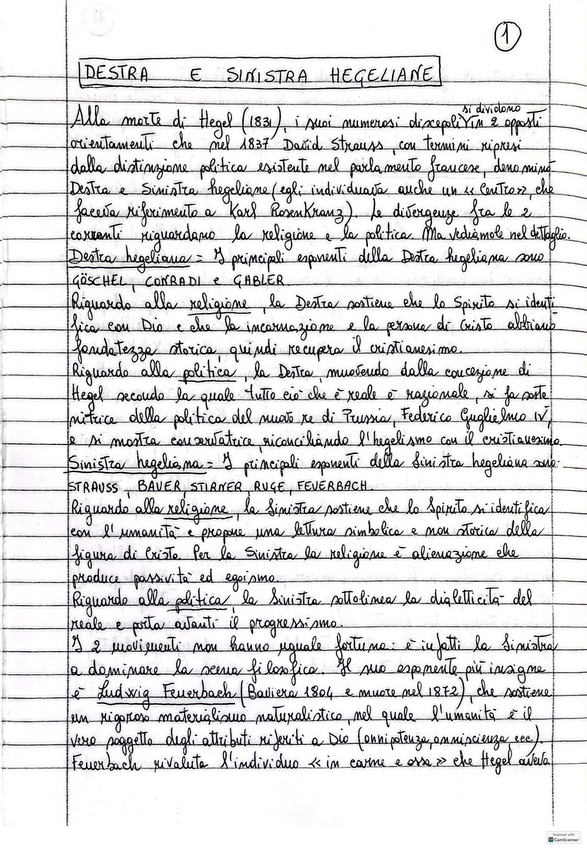 1
DESTRA E SINISTRA HEGELIANE
si dividono
Alla morte di Hegel (1831), i suoi numerosi discepoli in 2 opposti
orientamenti che nel 1837 David Strauss, con termini ripresi
dalla distinzione politica esistente nel parlamento francese, denominò
Destra e Sinistra hegeliane (egli individuava anche un «Centro», che
faceva riferimento a Karl RosenKranz). Le divergenze fra le 2
correnti riguardano la religione e la politica. Ma vediamole nel dettaglio.
Destra hegeliana = I principali esponenti della Destra hegeliana sono
GÖSCHEL, CONRADI e GABLER.
Riguardo alla religione, la Destra sostiene che lo Spirito si identi
fica con Dio e che la incarnazione e la persona di Cristo abbiano
fondatezza storica, quindi recupera il cristianesimo.
Riguardo alla politica, la Destra, muovendo dalla concezione di
Hegel secondo la quale tutto ciò che è reale è razionale, si fa soste
nitrice della politica del nuovo re di Prussia, Federico Guglielmo IV,
e si mostra conservatrice, riconciliando l'hegelismo con il cristianesimo.
Sinistra hegeliana = I principali esponenti della Sinistra hegeliana sono
STRAUSS, BAUER, STIRNER, RUGE, FEUERBACH.
Riguardo alla religione, la Sinistra sostiene che lo Spirito si identifica
con l'umanità e propone una lettura simbolica e non storica della
figura di Cristo. Per la Sinistra la religione è alienazione che
produce passività ed egoismo.
Riguardo alla politica, la Sinistra sottolinea la dialetticità del
reale e porta avanti il progressismo.
I 2 movimenti non hanno uguale fortuna: è infatti la Sinistra
a dominare la scena filosofica. Il suo esponente più insigne
è Ludwig Feuerbach (Baviera 1804 e muore nel 1872), che sostiene
un rigoroso materialismo naturalistico, nel quale l'umanità è il
vero soggetto degli attributi riferiti a Dio (onnipotenza, onniscienza, ecc).
Feuerbach rivaluta l'individuo «in carne e ossa» che Hegel aveva
Scanned with
CamScanner